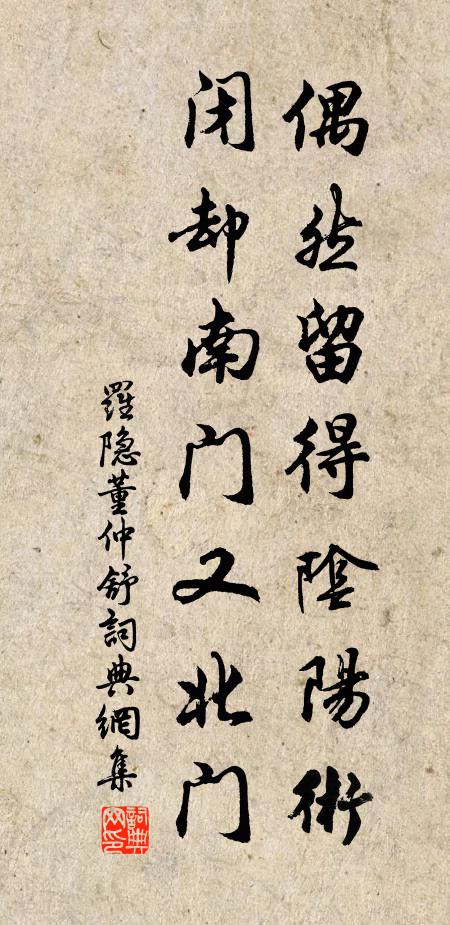 偶然留得陰陽術
闭却南门又北门
羅隐董仲舒詞典網集
詞典网印